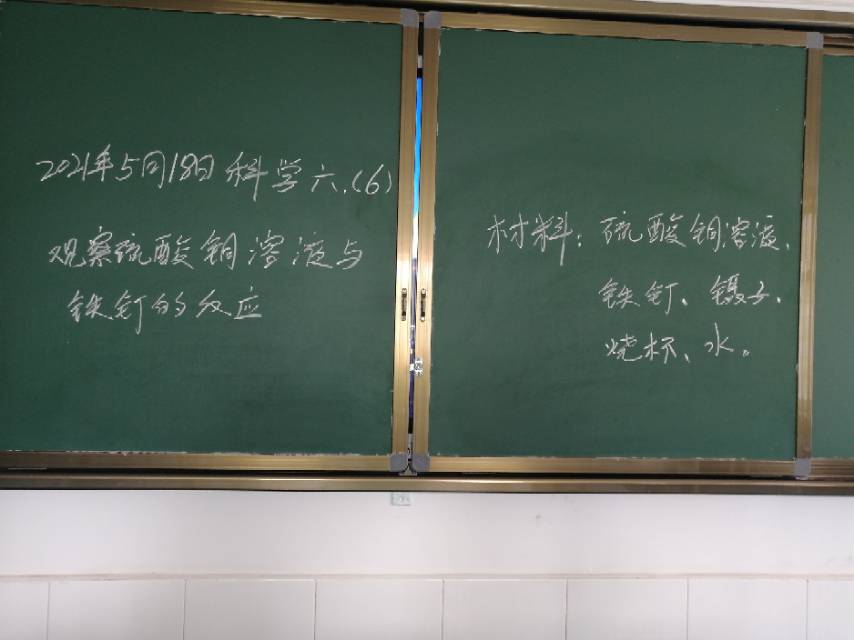 2021年5月18日科学六.(6)
观察硫酸铜溶液与
铁钉的反应
材料：硫酸铜溶液、
铁钉、镊子、
烧杯、水。